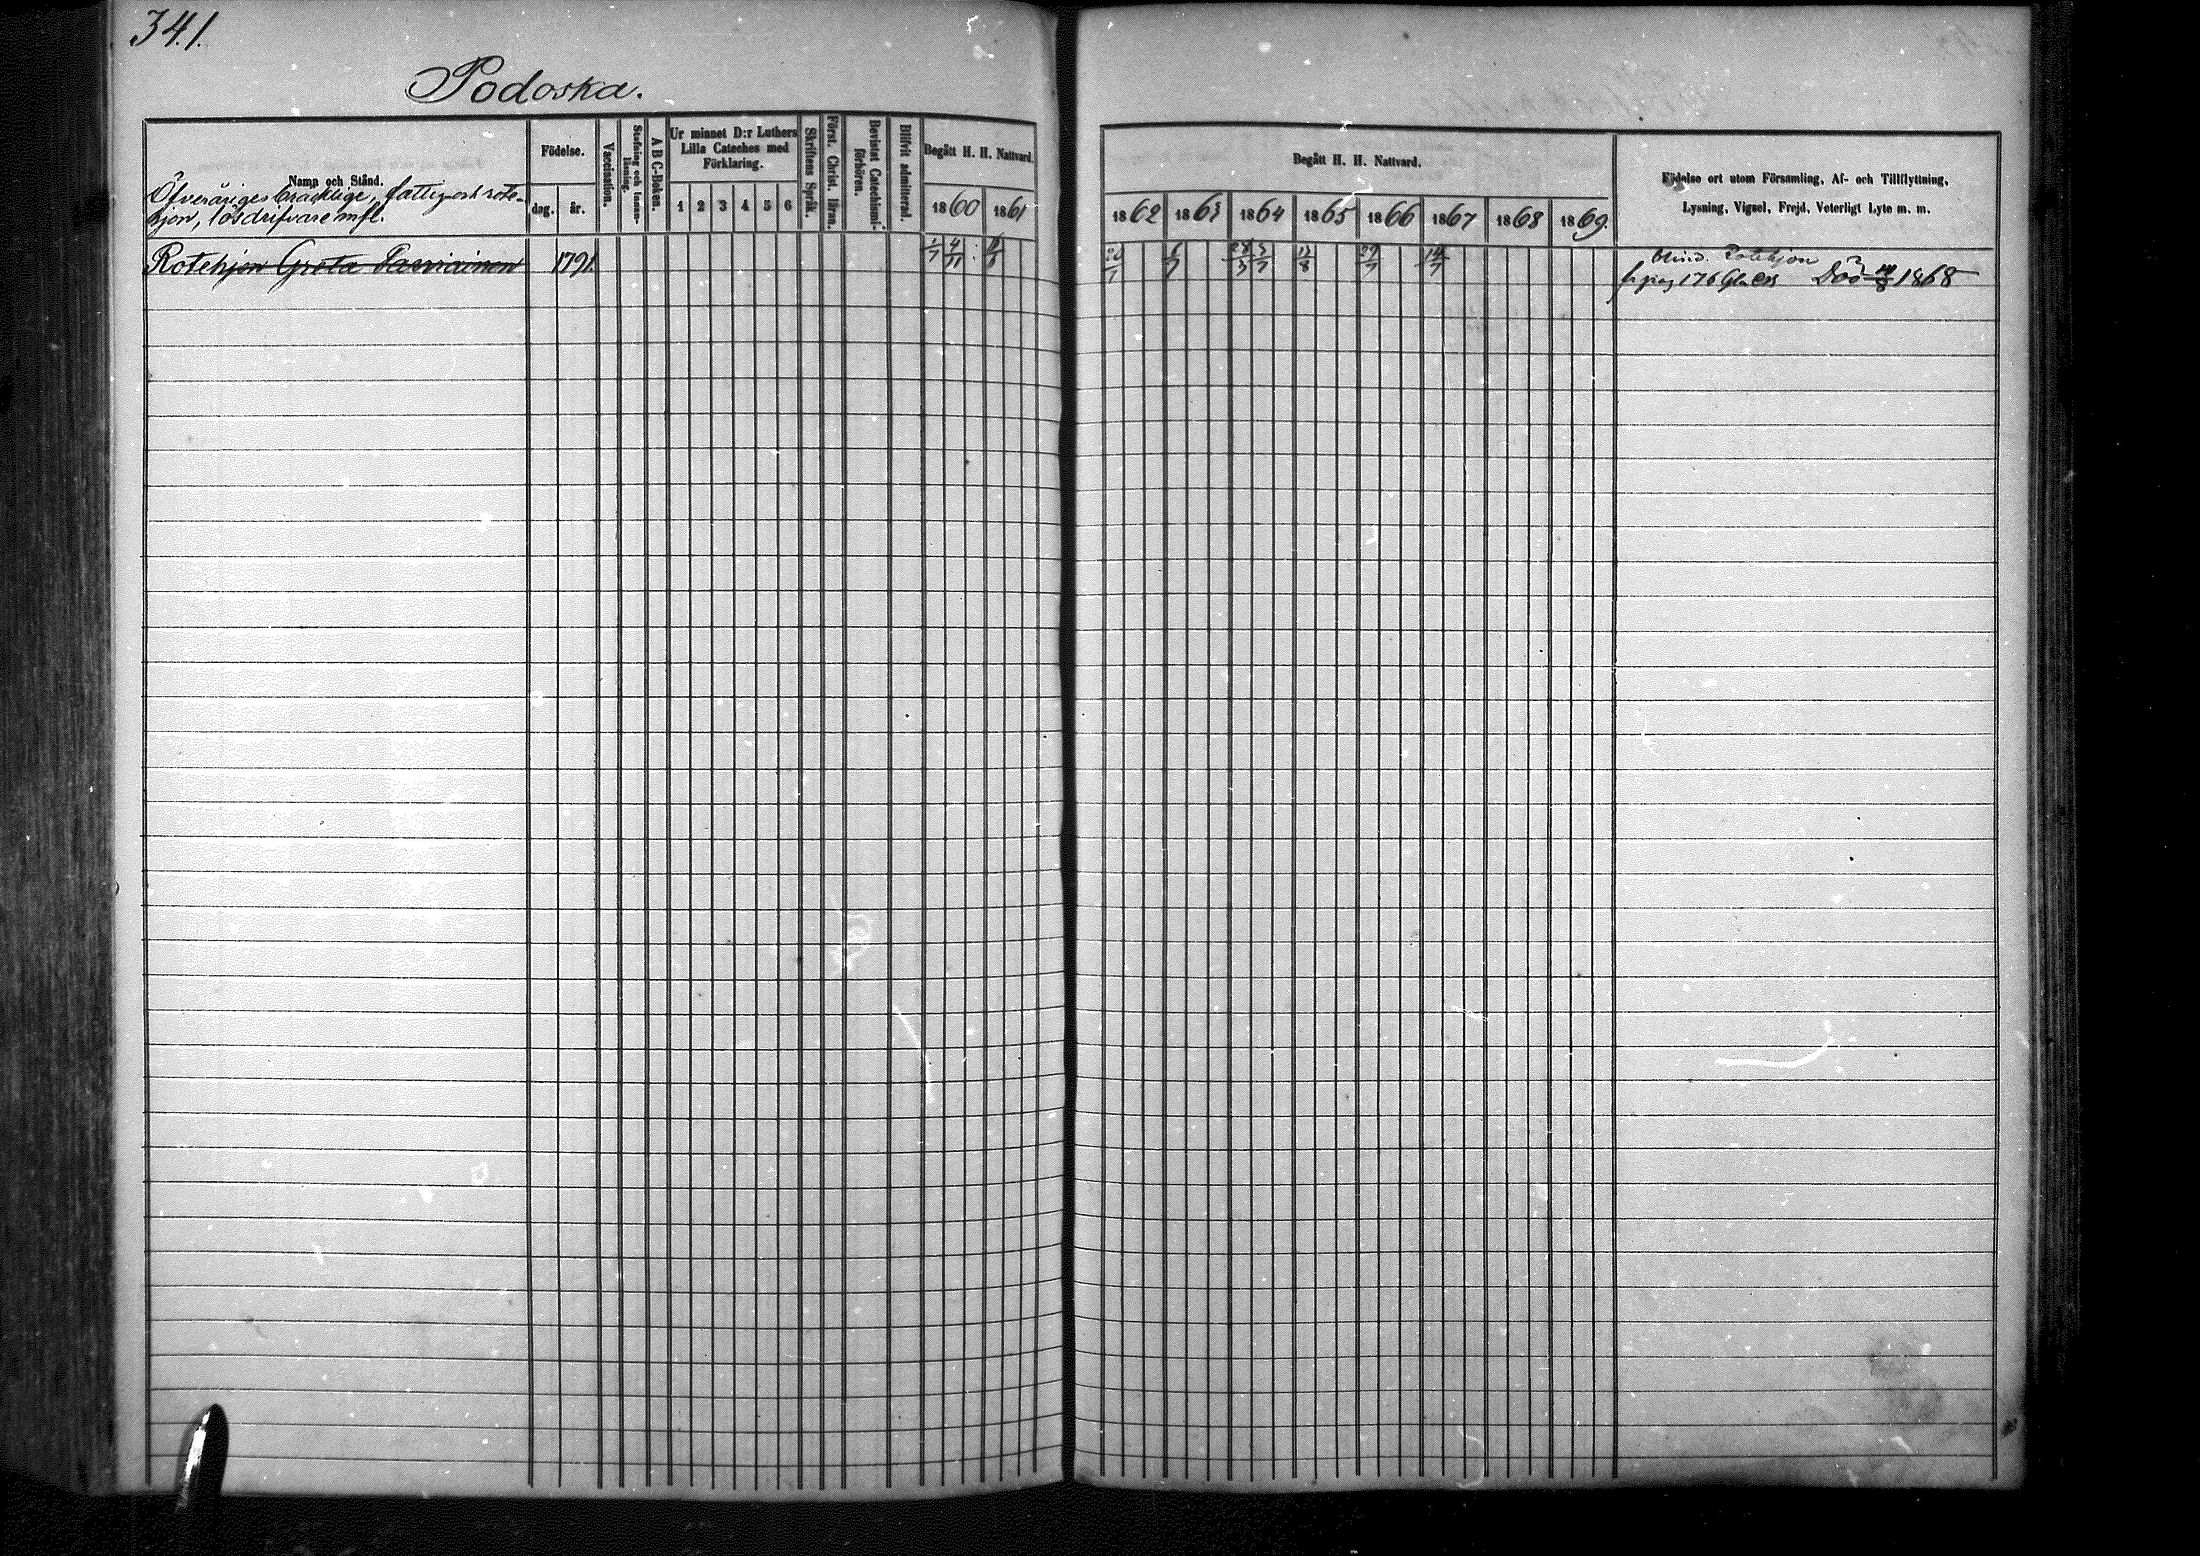 341.
Podoska.
Namn och Stånd.
Öfveråriges bräcklige, fattige och rote-
hjon, lösdrifvare mfl.
Födelse.
dag. år.
Vaccination.
Stafning och innan-
läsning.
A B C-Boken.
Ur minnet D:r Luthers
Lilla Cateches med
Förklaring.
1 2 3 4 5 6
Skriftens Språk.
Först. Christ. läran.
Bevistat Catechismi-
förhören.
Blifvit admitterad.
Begått H. H. Nattvard.
1860 1861
Begått H. H. Nattvard.
1862 1863 1864 1865 1866 1867 1868 1869.
Födelse ort utom Församling, Af- och Tillflyttning,
Lysning, Vigsel, Frejd, Veterligt Lyte m. m.
Rotehjon Greta 1791 4/11 12/8 29/7 14/7
blind. Rotehjon
fr pag 176 Död 1868